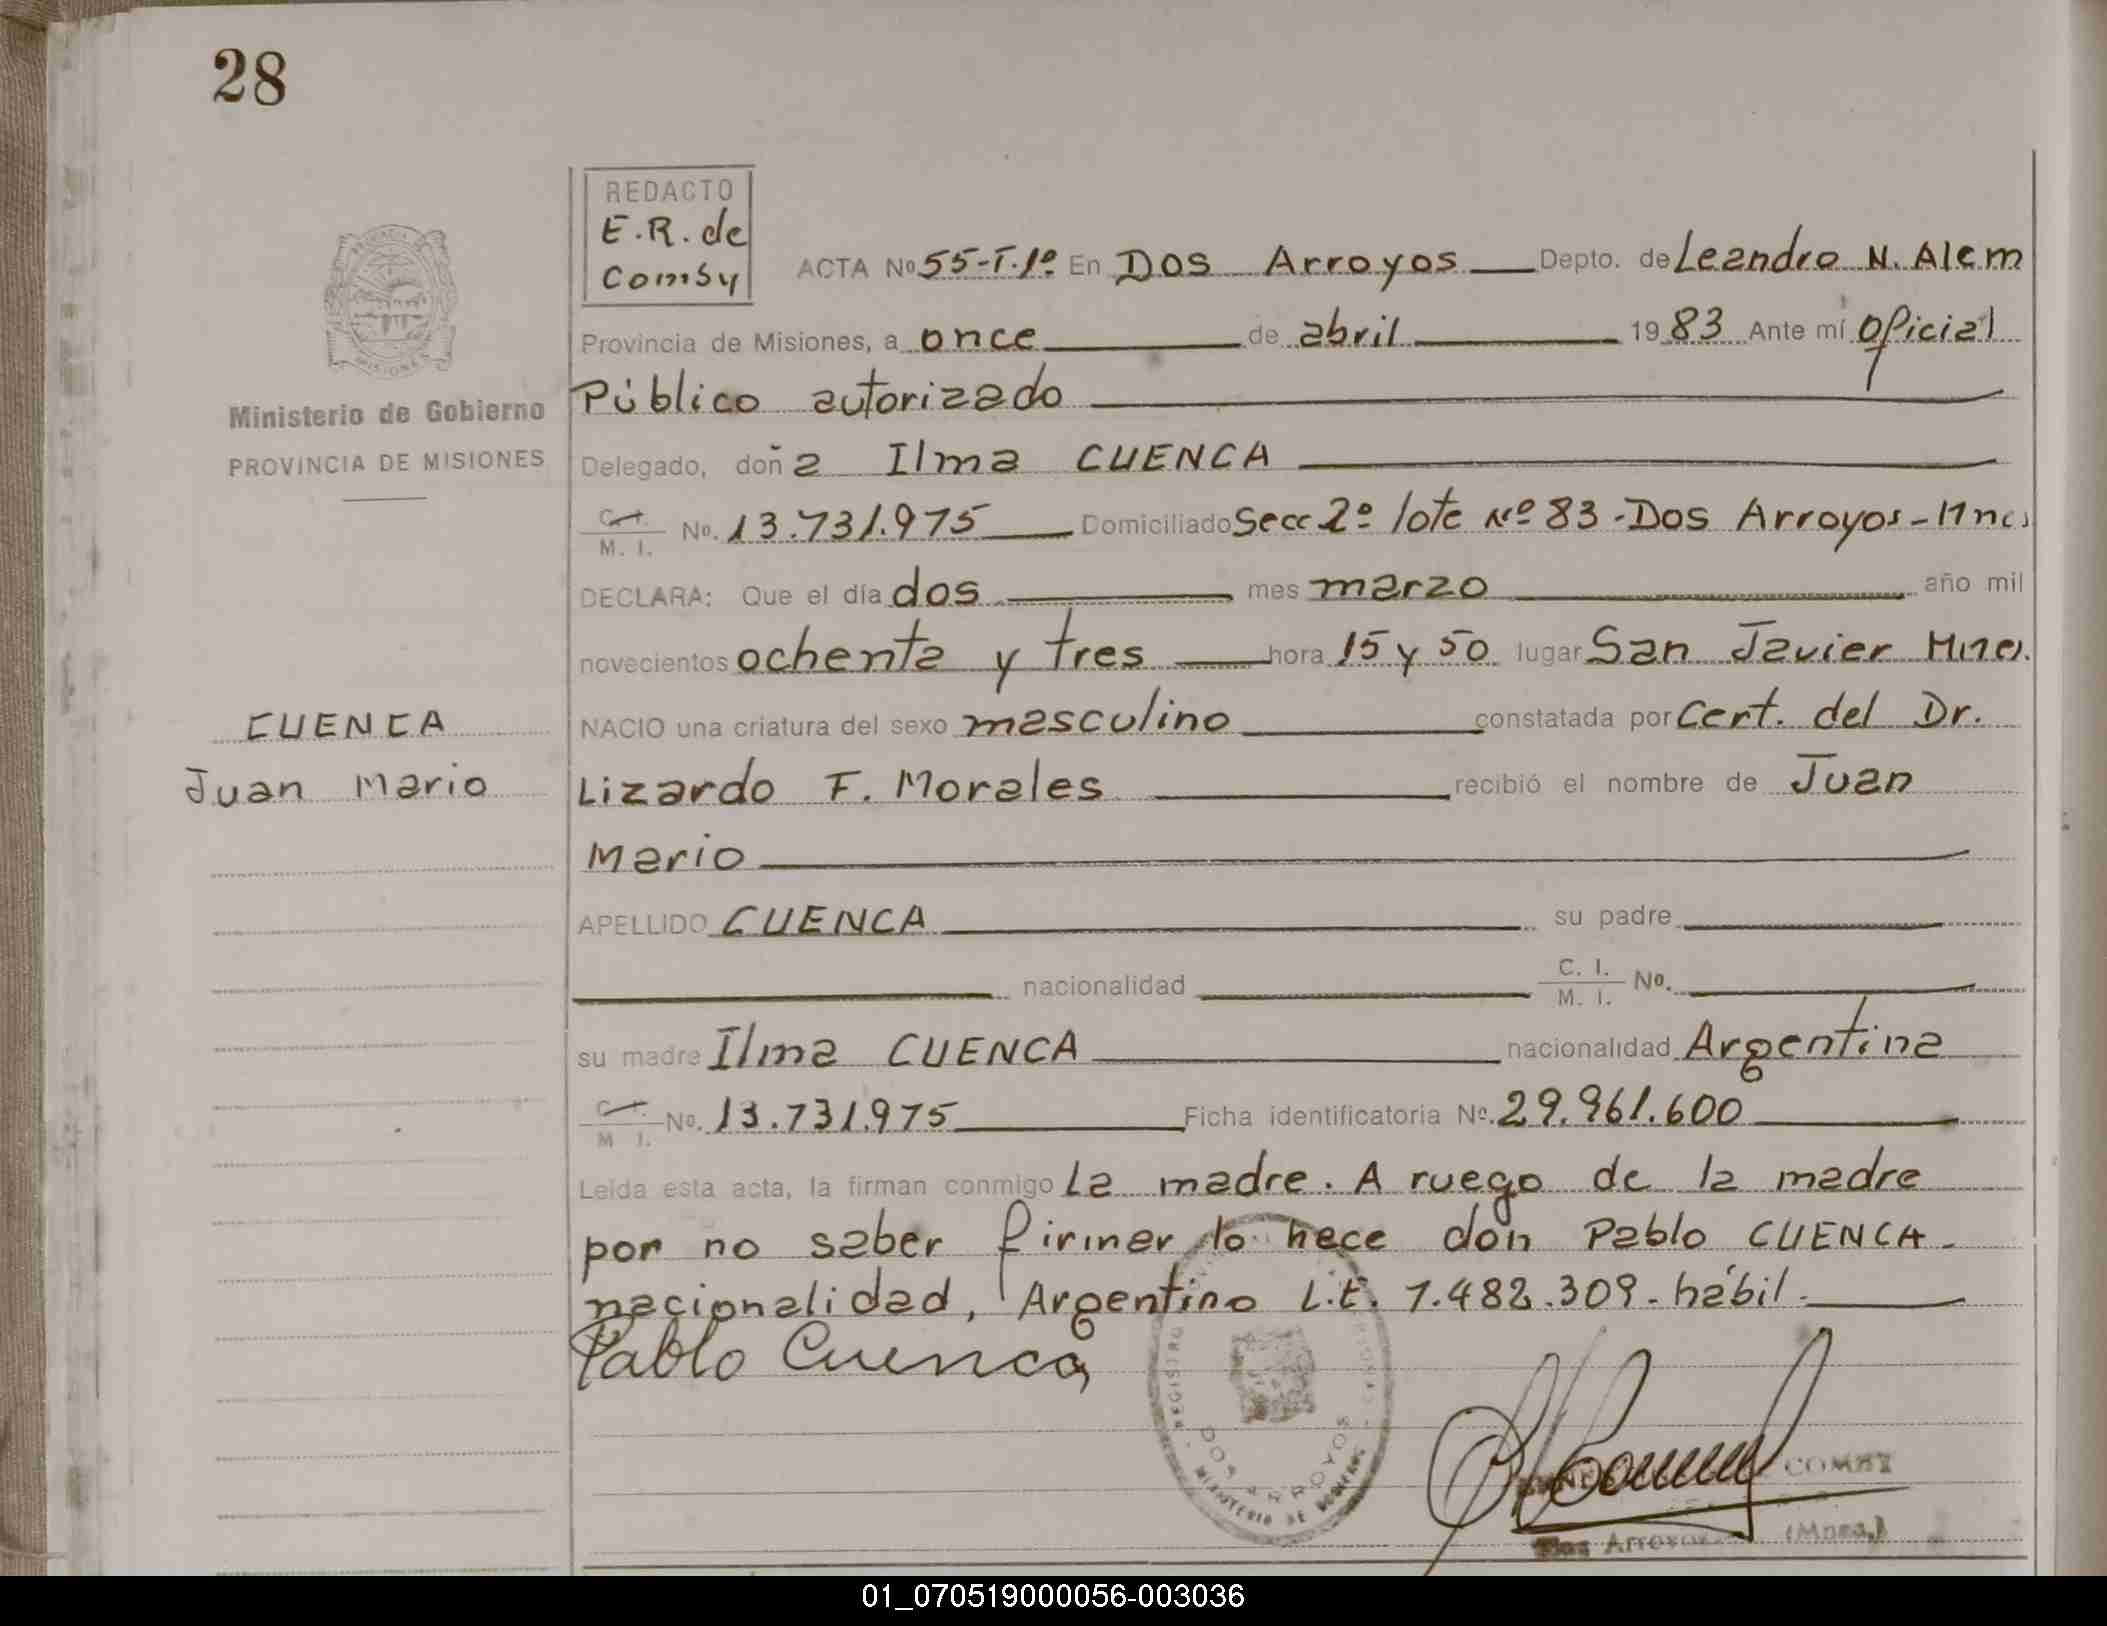 28
REDACTO
E.R. de
Comby
ACTA No 55-T.1º En Dos Arroyos Depto. de Leandro N. Alem
Provincia de Misiones, a once de abril 1983 Ante mí Oficial
Público autorizado
Ministerio de Gobierno
PROVINCIA DE MISIONES
Delegado, doña Ilma CUENCA
C. I. M. I. No. 13.731.975 Domiciliado Secc 2º lote Nº 83 - Dos Arroyos - Mnes
DECLARA: Que el día dos mes marzo año mil
novecientos ochenta y tres hora 15 y 50 lugar San Javier Mnes.
NACIO una criatura del sexo masculino constatada por Cert. del Dr.
CUENCA
Juan Mario
Lizardo F. Morales recibió el nombre de Juan
Mario
APELLIDO CUENCA su padre
nacionalidad C. I. M. I. No.
su madre Ilma CUENCA nacionalidad Argentina
C. I. M I. No. 13.731.975 Ficha identificatoria No. 29.961.600
Leída esta acta, la firman conmigo La madre. A ruego de la madre
por no saber firmar lo hace don Pablo CUENCA-
nacionalidad, Argentino L.E. 7.482.309- hábil.
Pablo Cuenca
REGISTRO
DOS ARROYOS
MINISTERIO DE GOBIERNO
COMBY
Dos Arroyos (Mnes.)
01_070519000056-003036